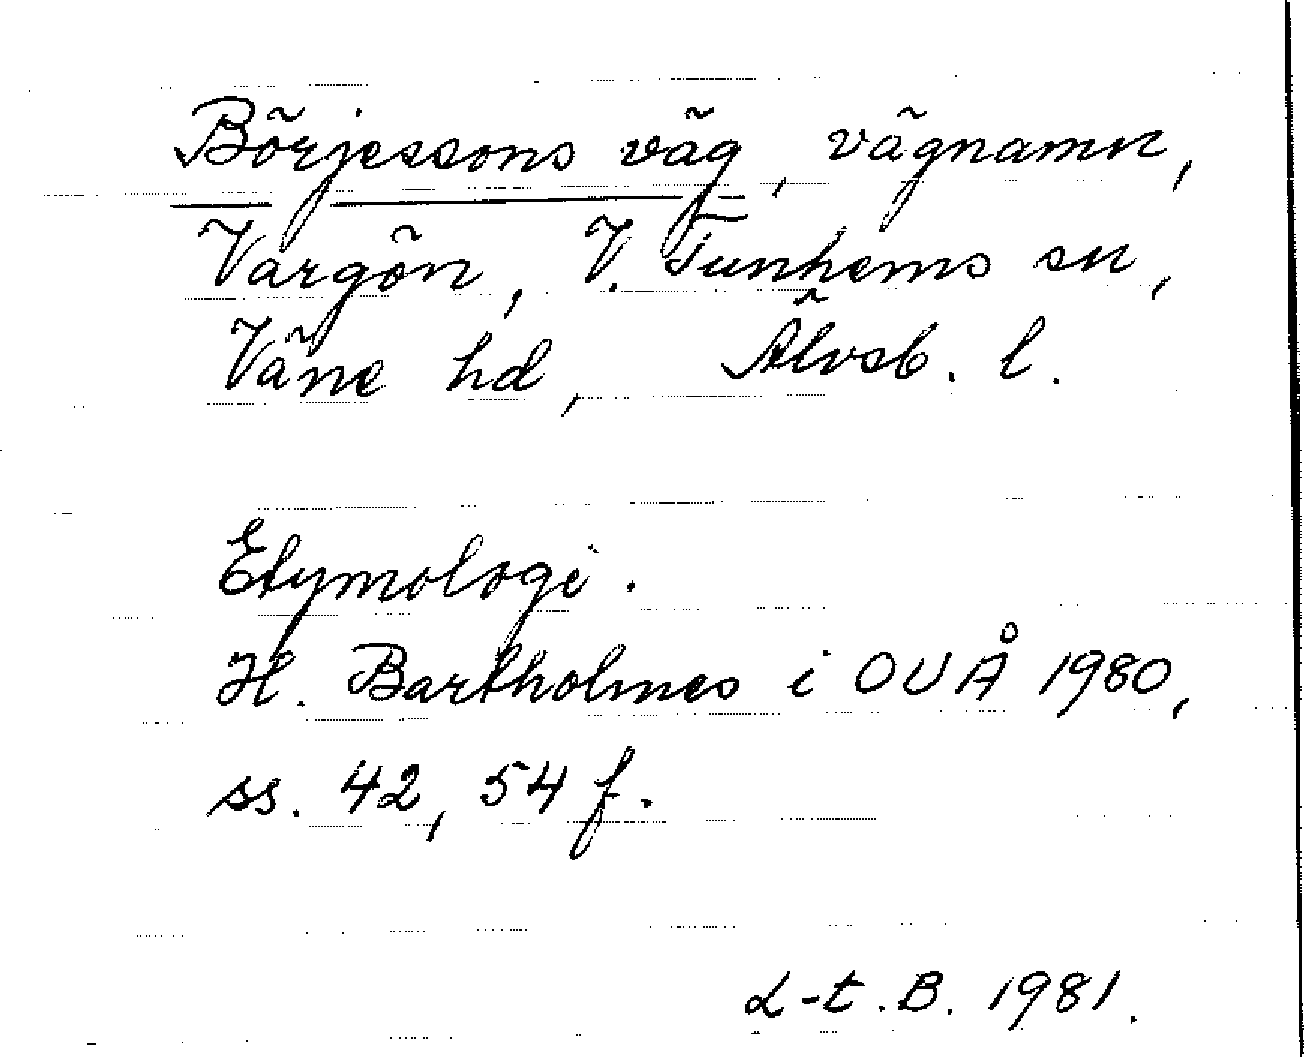 Börjessons väg, vägnamn,
Vargön, V. Tunhems sn,
Väne hd, Älvsb. l.
Etymologi.
H. Bartholmes i OUÅ 1980,
ss. 42, 54 f.
L-t. B. 1981.